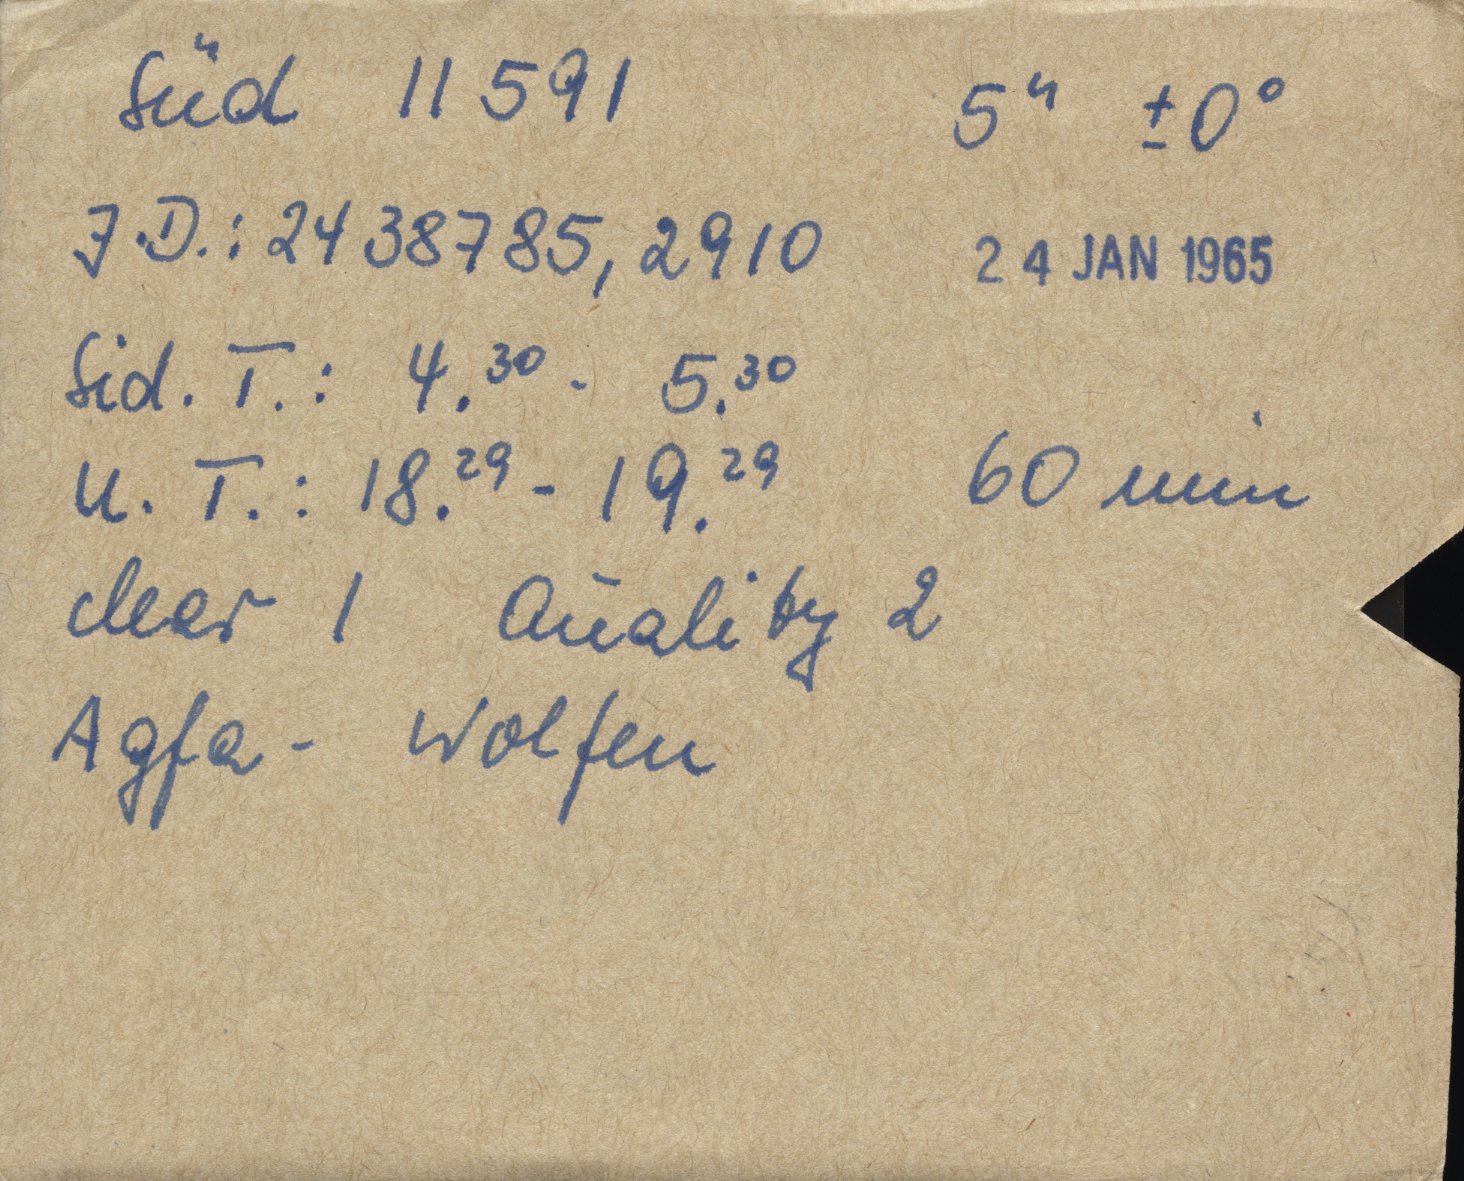 Süd 11591 5ʰ ±0°
J.D.: 2438785,2910 24 JAN 1965
Sid. T.: 4.³⁰ - 5.³⁰
U. T.: 18.²⁹ - 19.²⁹ 60 min
clear 1 Quality 2
Agfa - Wolfen